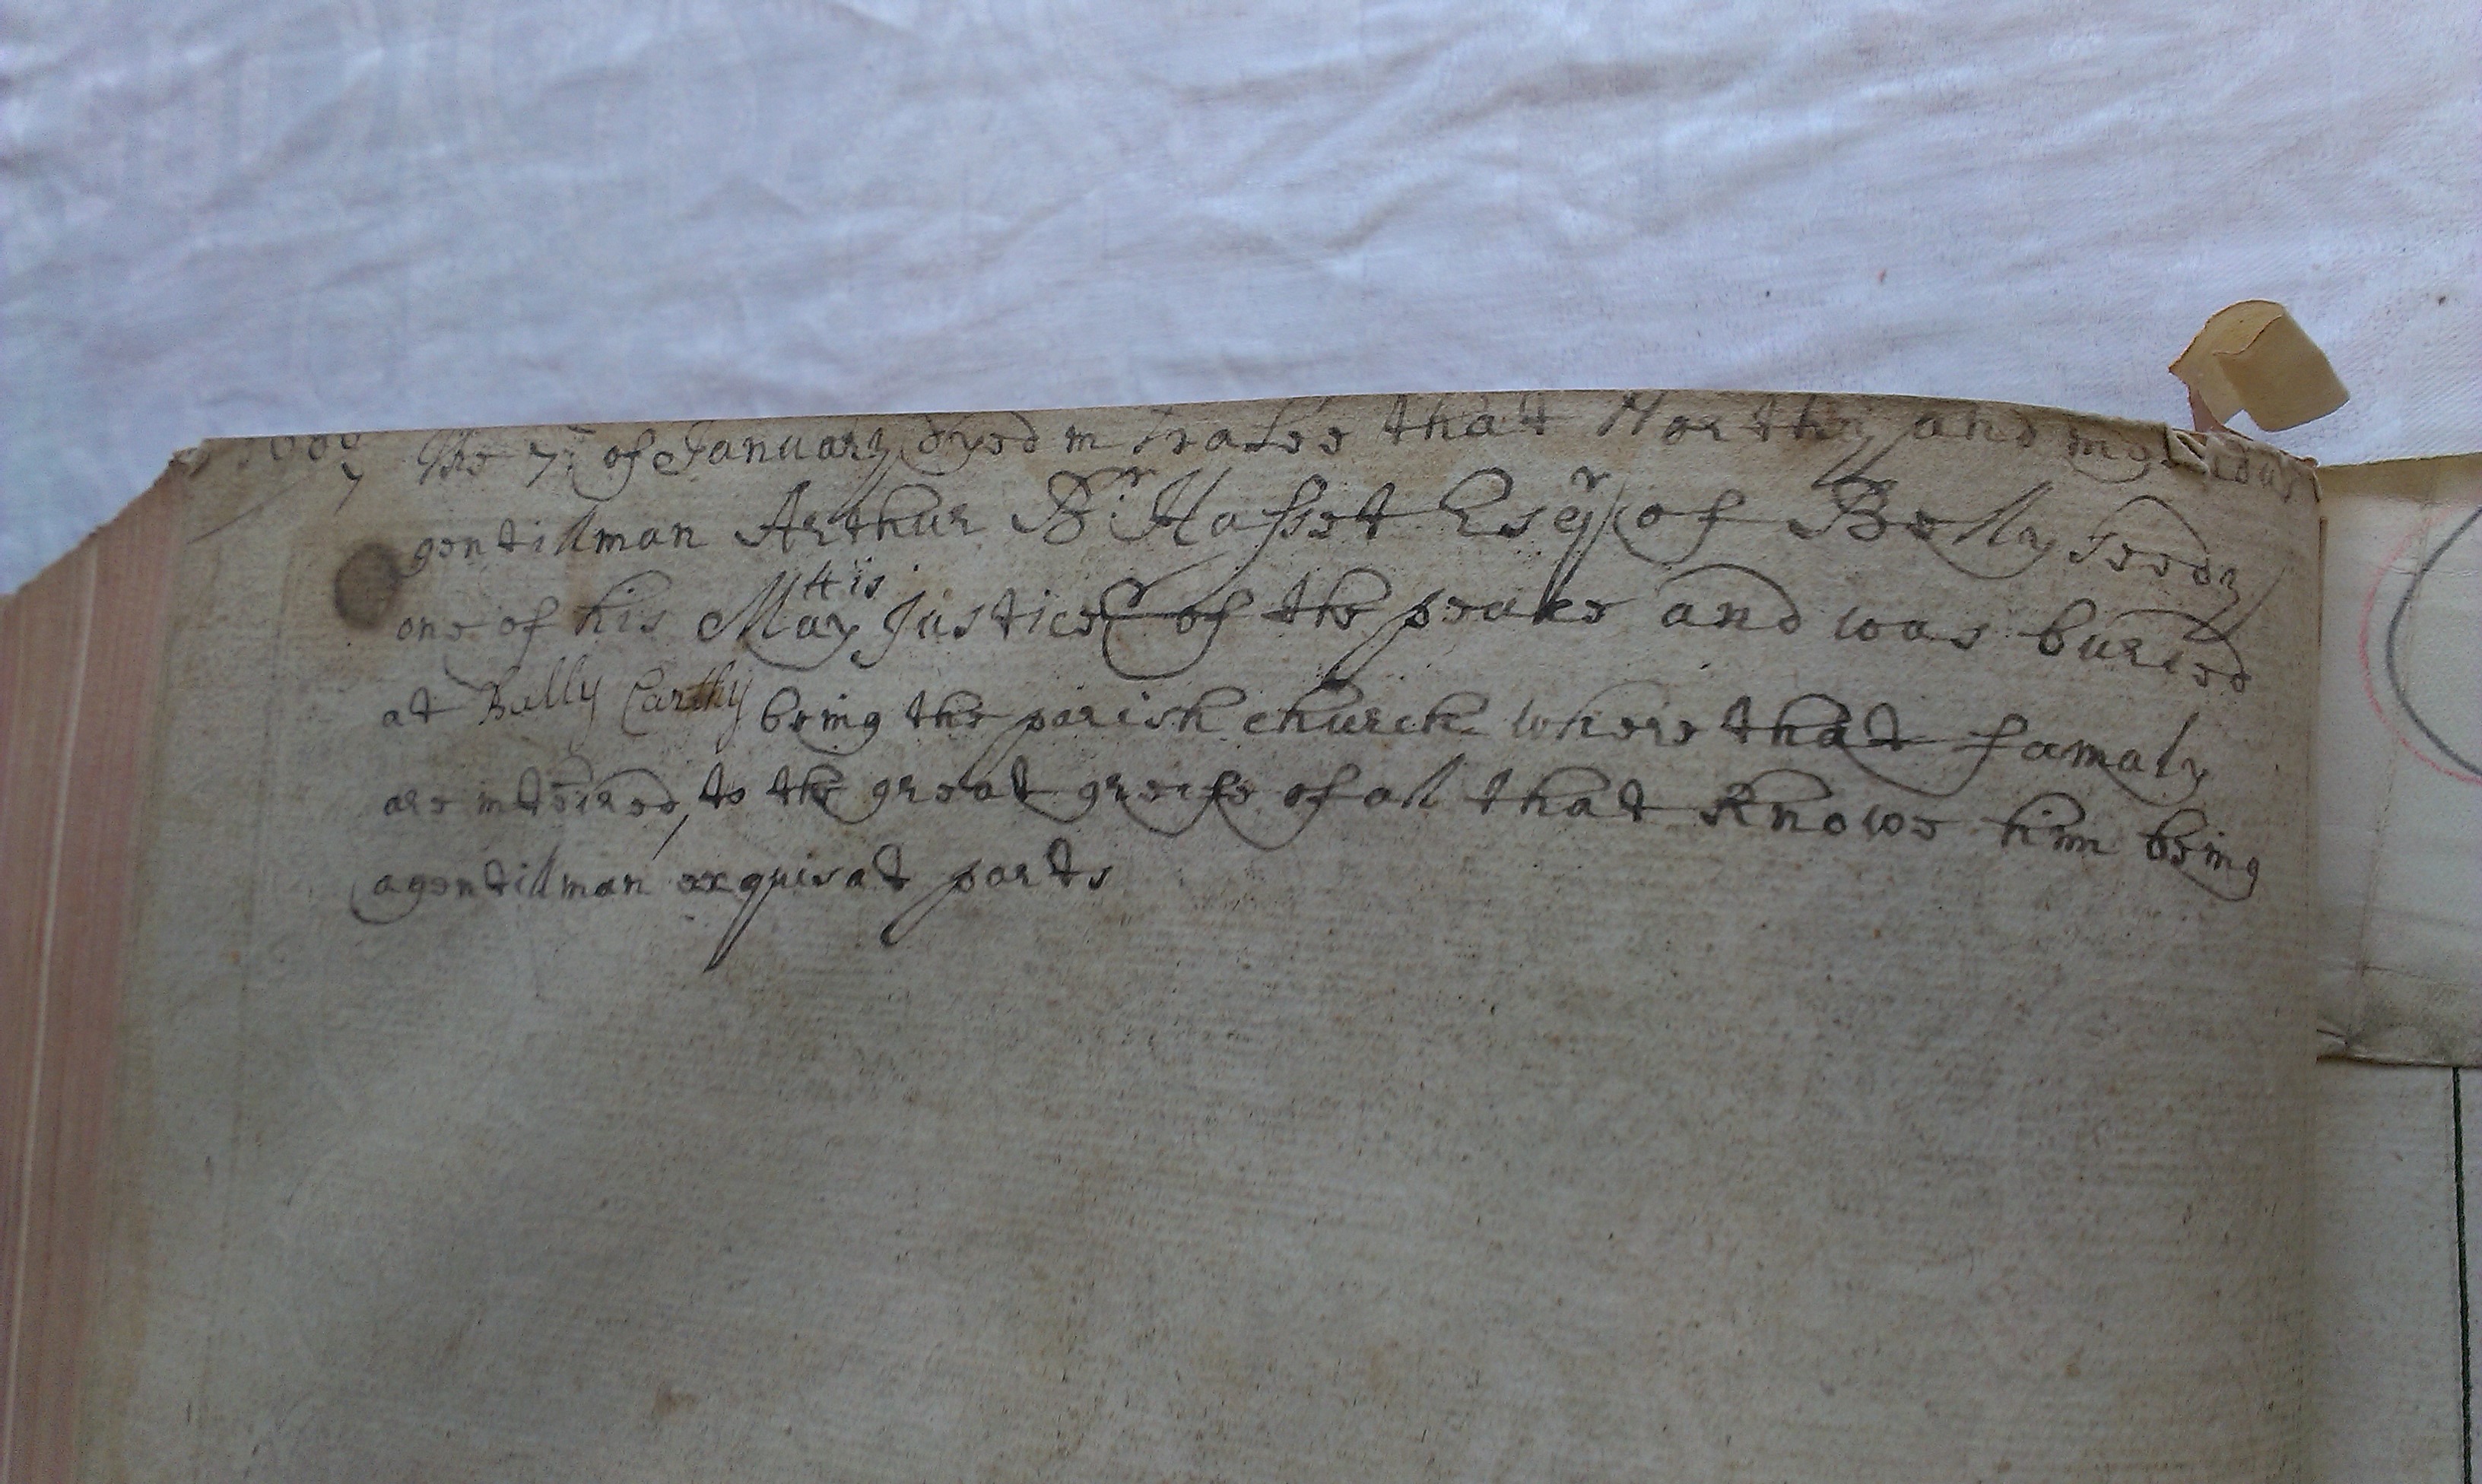 7 The 7th of January dyed in Tralee that Worthy and
gentillman Arthur Br Hasset Esqr of Bellyseedy
one of his Matis Justices of the peake and was buried
at Bally Carthy being the parish church where that famaly
are inteired, to the great greife of all that knowe him being
a gentillman exquisat parts